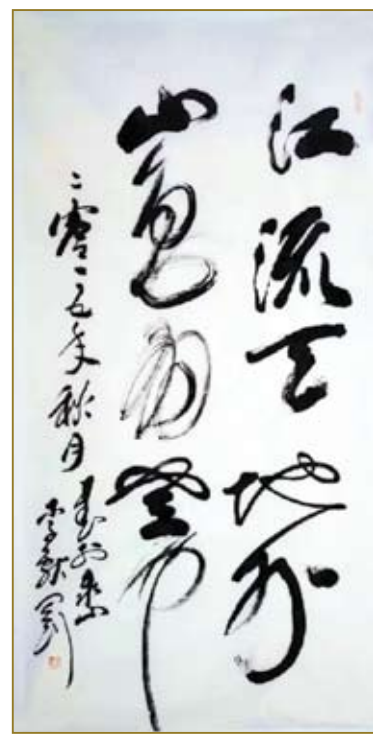 江流天地外
山色有無中
二零一五年秋月
李献